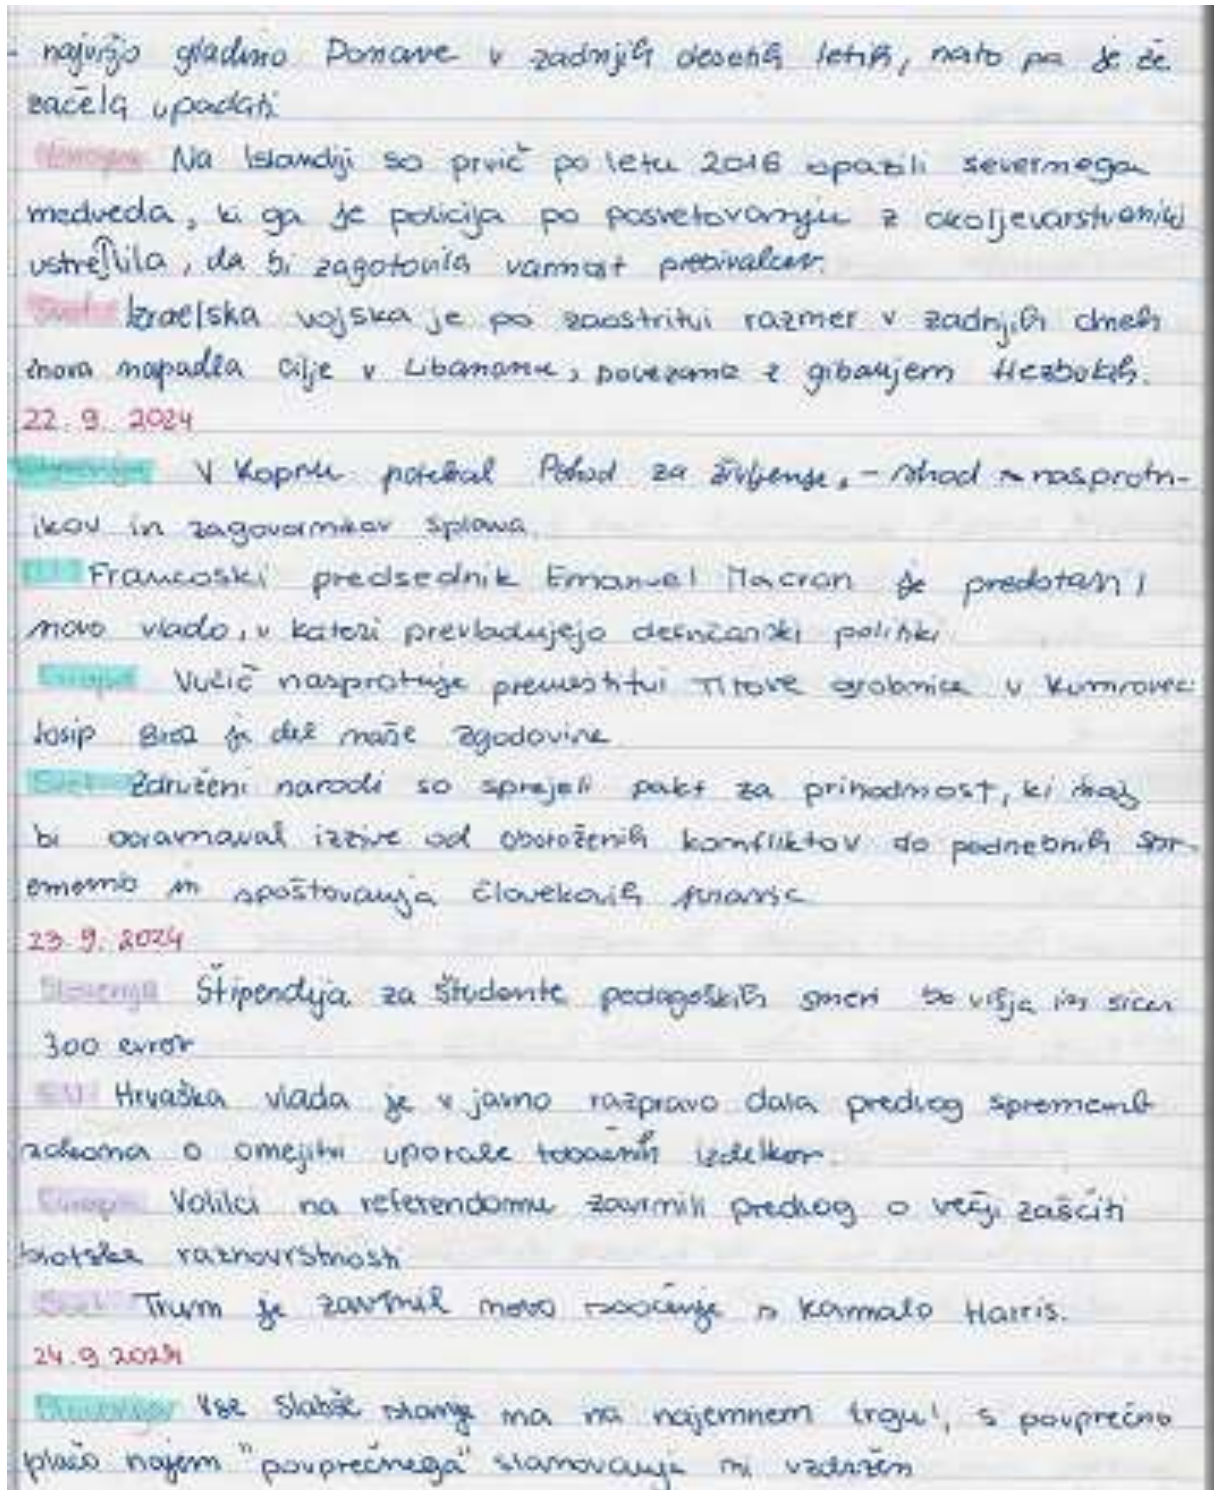 - najvišjo gladino Donave v zadnjih desetih letih, nato pa je že
začela upadati
Na Islandiji so prvič po letu 2016 opazili severnega
medveda, ki ga je policija po posvetovanju z okoljevarstveniki
ustrelila, da bi zagotovila varnost prebivalcev.
Svet Izraelska vojska je po zaostritvi razmer v zadnjih dneh
znova napadla cilje v Libanonu, povezane z gibanjem Hezbolah.
22. 9. 2024
Slovenija V Kopru potekal Pohod za življenje, - shod nasprotn-
ikov in zagovornikov splava.
EU Francoski predsednik Emanuel Macron je predstavil
novo vlado, v kateri prevladujejo desničarski politiki
Evropa Vučić nasprotuje premestitvi Titove grobnice v Kumrovec:
Josip Broz je del naše zgodovine
Svet Združeni narodi so sprejeli pakt za prihodnost, ki naj
bi obravnaval izzive od oboroženih konfliktov do podnebnih spr-
ememb in spoštovanja človekovih pravic
23. 9. 2024
Slovenija Štipendija za študente pedagoških smeri bo višja in sicer
300 evrov
EU Hrvaška vlada je v javno razpravo dala predlog sprememb
zakona o omejitvi uporabe tobačnih izdelkov.
Evropa Volilci na referendomu zavrnili predlog o večji zaščiti
biotske raznovrstnosti
Svet Trum je zavrnil novo soočenje s Kamalo Harris.
24. 9. 2024
Slovenija Vse slabše stanje na na najemnem trgu!, s povprečno
plačo najem "povprečnega" stanovanja ni vzdržen